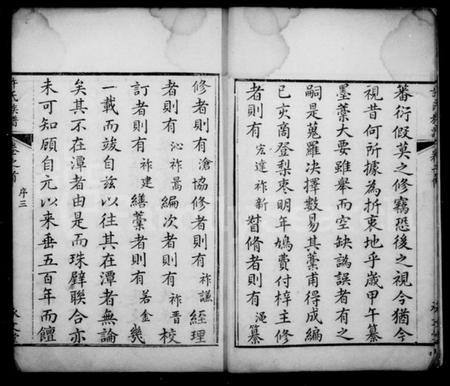 蕃衍假莫之修竊恐後之視今猶今
視昔何所據為折衷地乎歲甲午纂
墨藁大要雖舉而空缺譌誤者有之
嗣是蒐羅决擇數易其藁甫得成編
己亥商登梨棗明年鳩費付梓主修
者則有宏達祚新督脩者則有澠纂
修者則有滄協修者則有祚謡經理
者則有沁祚暠編次者則有祚晋校
訂者則有祚建繕藁者則有若金幾
一載而竣自兹以往其在潭者無論
矣其不在潭者由是而珠聯璧合亦
未可知顧自元以来垂五百年而饘
許氏族譜 卷之首 序三